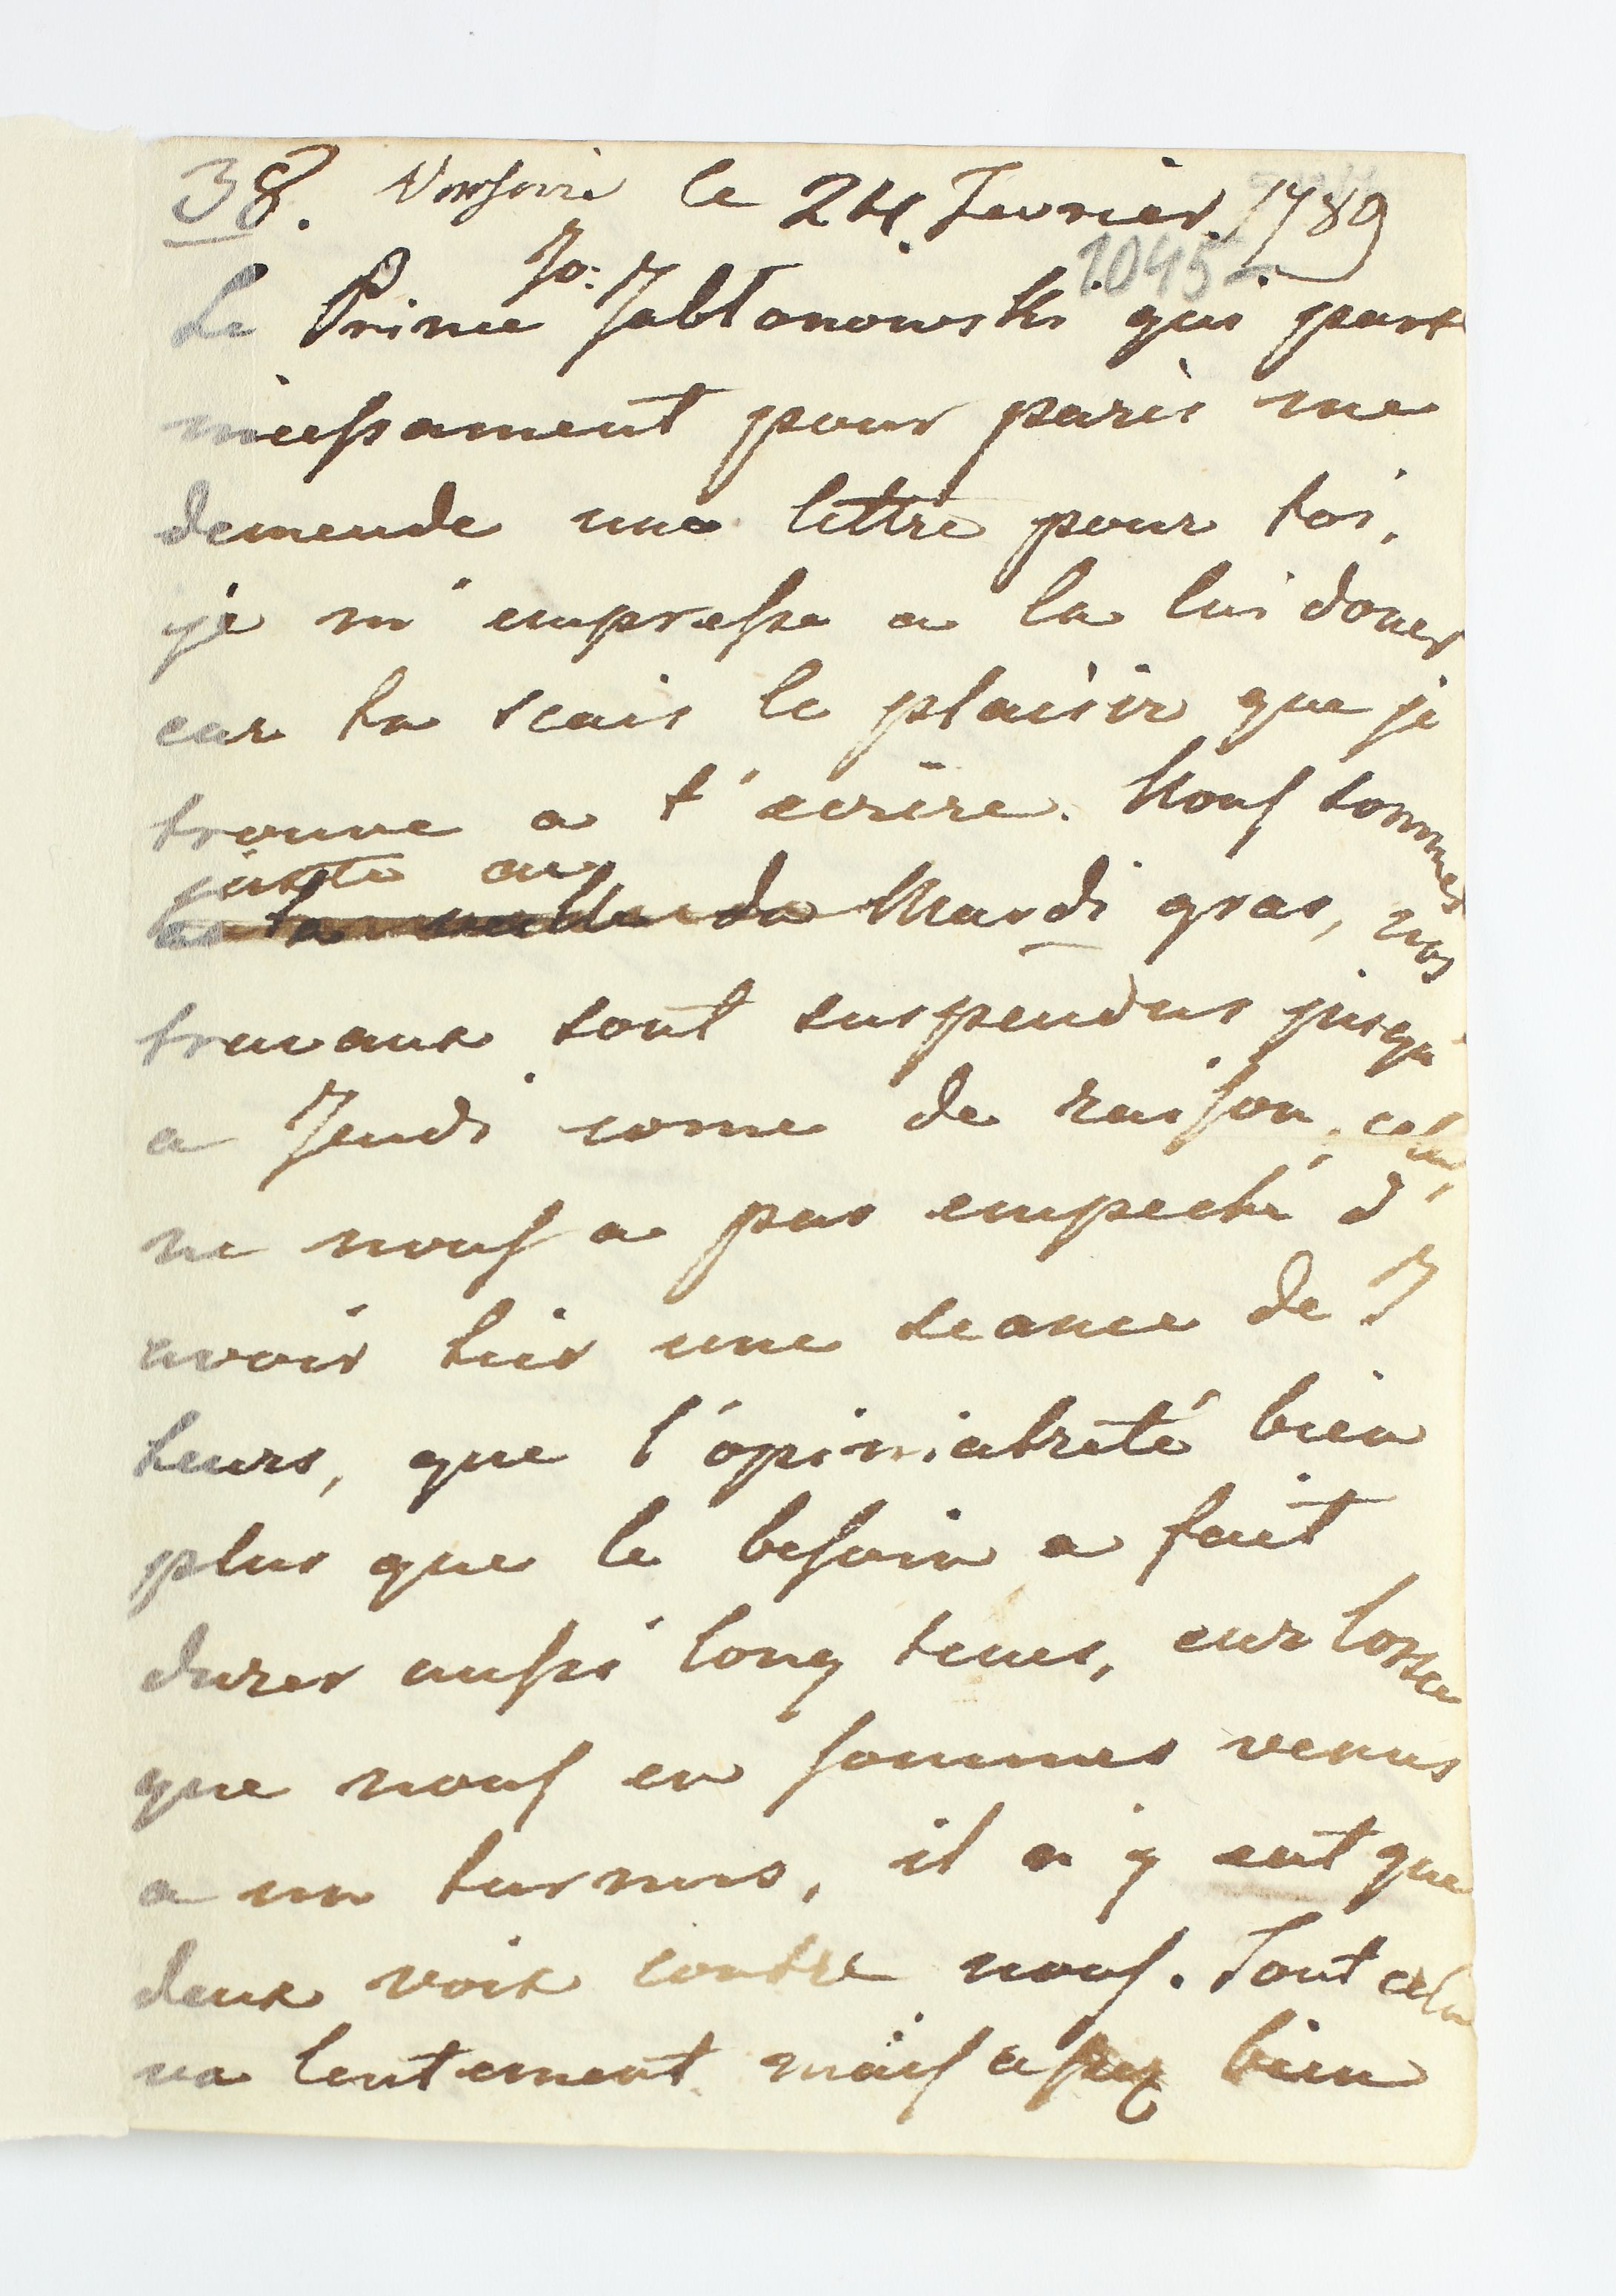 38. Varsovie le 24. Fevrier 1789
1045
Le Prince Jo: Jabłonowski qui part
incessament pour paris me
demende une lettre pour toi,
je m'empresse a la lui doner
car tu scais le plaisir que je
trouve a t'ecrire. Nous sommes
juste au
a la veille du Mardi gras, nos
travaux sont suspendus jusqu'
a Jeudi come de raison, cela
ne nous a pas empeché d'
avoir hier une seance de 7
heurs, que l'opiniatreté bien
plus que le besoin a fait
durer aussi long tems, car lors
que nous en sommes venus
a un turnus, il n'y eut que
deux voix contre nous. Tout cela
va lentement mais assez bien